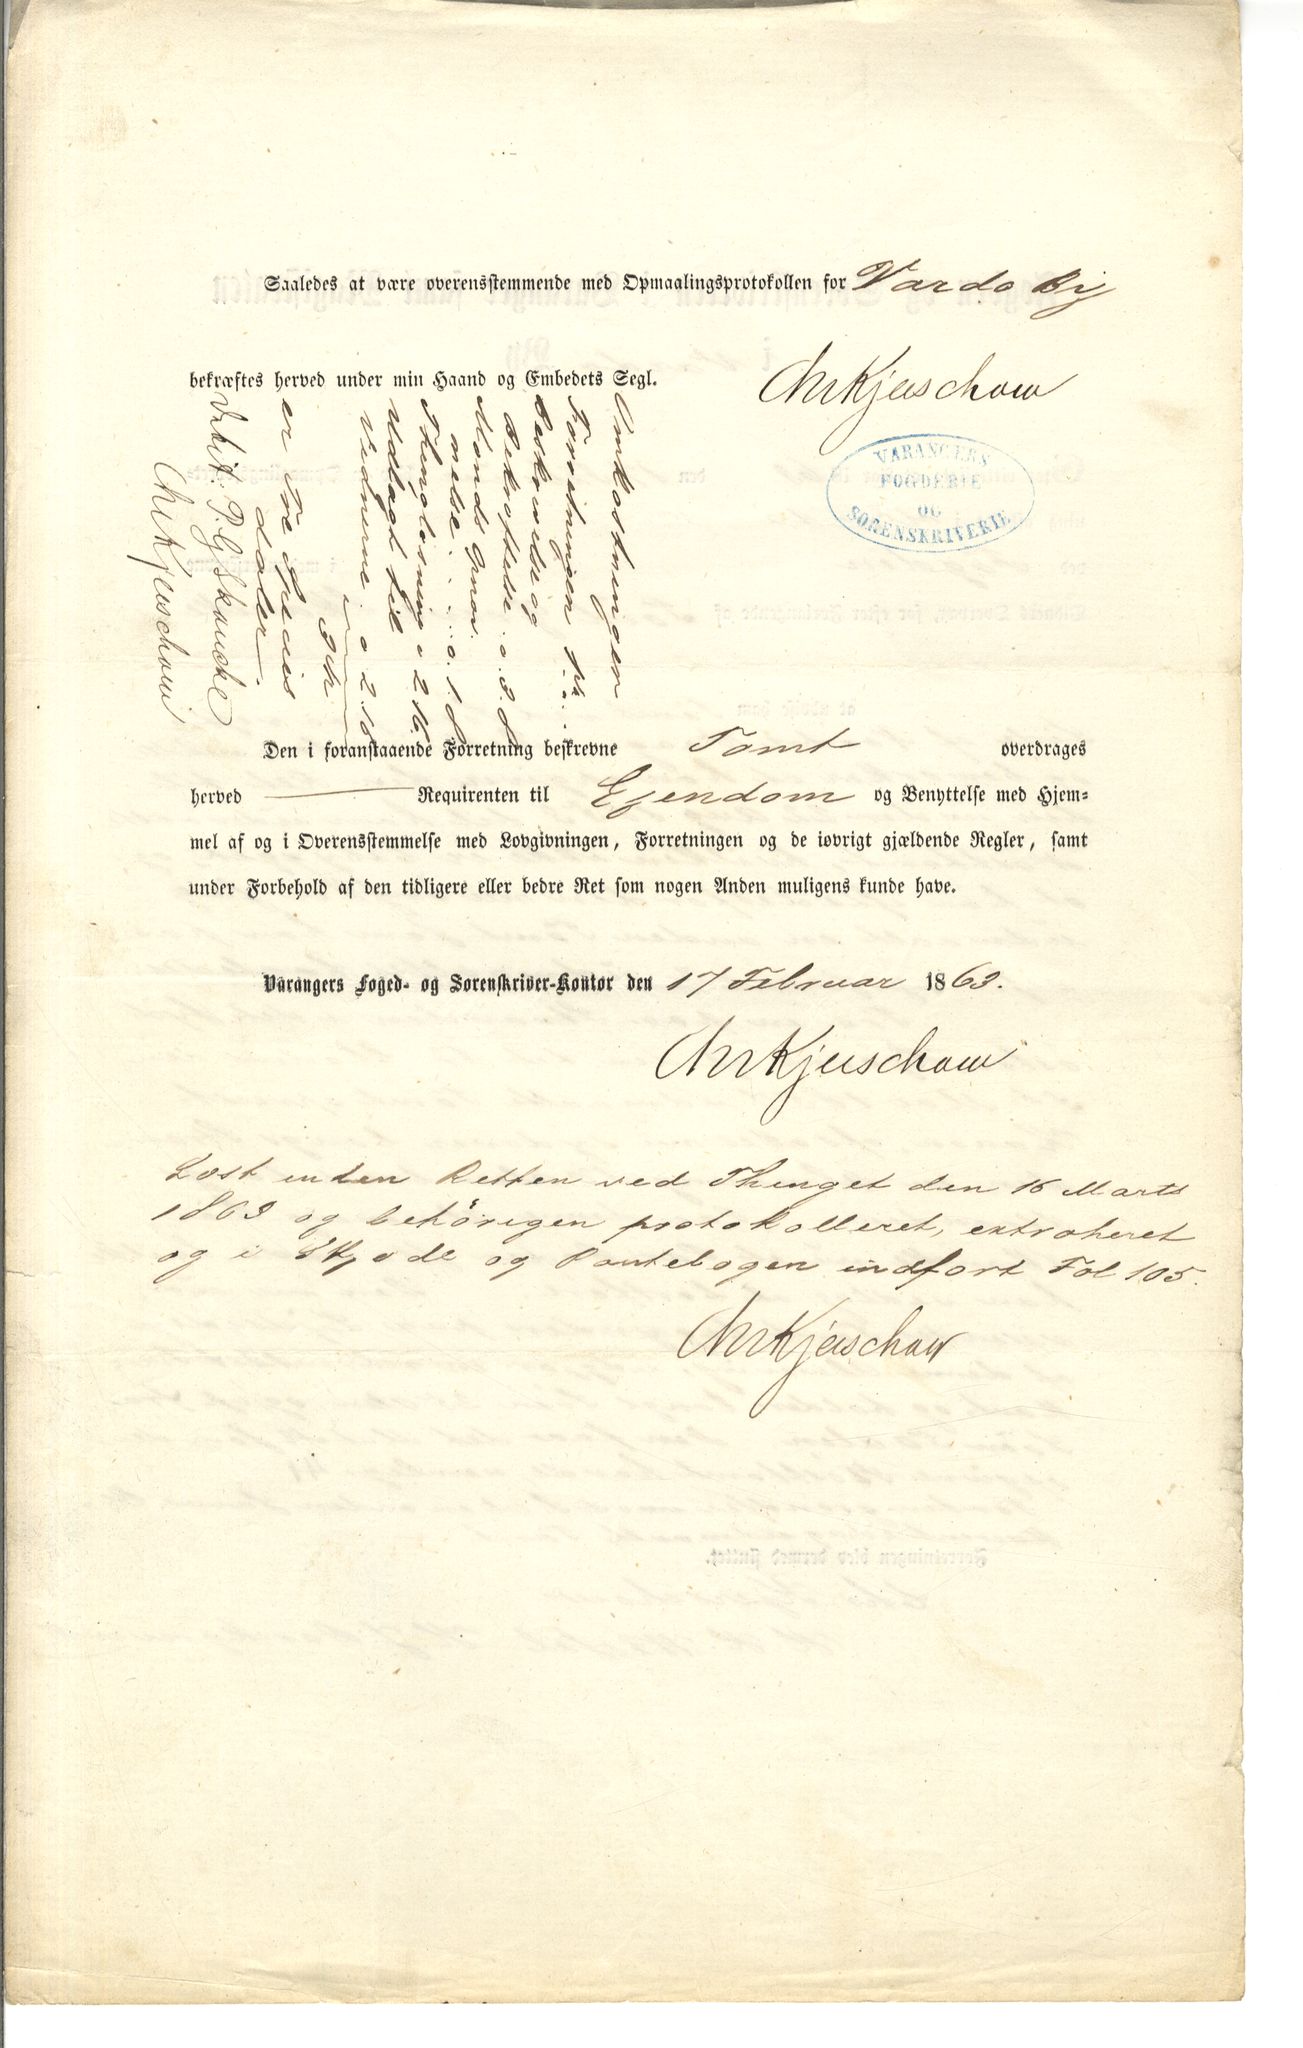 Saaledes at være overensstemmende med Opmaalingsprotokollen for Vardø By
bekræftes herved under min Haand og Embedets Segl.
Chr Kjerschow
VARANGERS
FOGDERIE
OG
SØRENSKRIVERIE
Omkostningen
Forretningen 1 Sp. " "
Beskrivelse og
Bekræftelse . " 3. 8
Thinglæsning " 2 16.
Udlagt til
Vidnerne . " 2. 16
3 Sp
er Tre Species
daler.
Debit: P. G. Skancke
Chr Kjerschow
Den i foranstaaende Forretning beskrevne Tomt overdrages
herved Requirenten til Ejendom og Benyttelse med Hjem-
mel af og i Overensstemmelse med Lovgivningen, Forretningen og de iøvrigt gjældende Regler, samt
under Forbehold af den tidligere eller bedre Ret som nogen Anden muligens kunde have.
Varangers Foged- og Sorenskriver-Kontor den 17 Februar 1863.
Chr Kjerschow
Læst inden Retten ved Thinget den 16 Marts
1863 og behörigen protokolleret, extraheret
og i Skjøde og Pantebogen indført Fol 105.
Chr Kjerschow